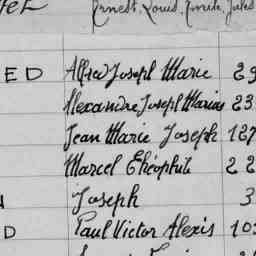 Ernest, Louis, Emile, Jules
ED Alfred Joseph Marie 29
Alexandre Joseph Marius 23
Jean Marie Joseph 127
Marcel Théophile 22
Joseph 3
D Paul Victor Alexis 10